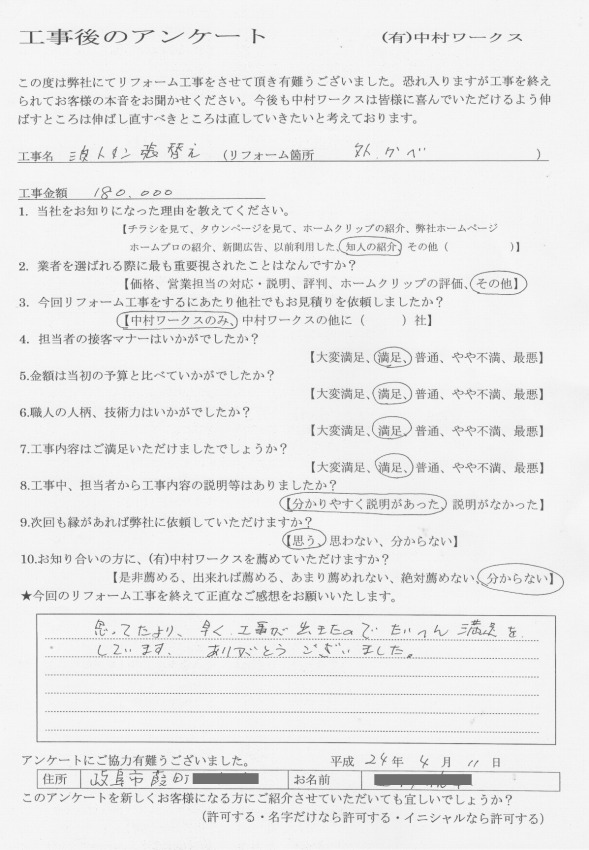 工事後のアンケート (有)中村ワークス
この度は弊社にてリフォーム工事をさせて頂き有難うございました。恐れ入りますが工事を終え
られてお客様の本音をお聞かせください。今後も中村ワークスは皆様に喜んでいただけるよう伸
ばすところは伸ばし直すべきところは直していきたいと考えております。
工事名 波トタン張替え (リフォーム箇所 外かべ )
工事金額 180,000
1. 当社をお知りになった理由を教えてください。
【チラシを見て、タウンページを見て、ホームクリップの紹介、弊社ホームページ
ホームプロの紹介、新聞広告、以前利用した、知人の紹介、その他( )】
2. 業者を選ばれる際に最も重要視されたことはなんですか?
【価格、営業担当の対応・説明、評判、ホームクリップの評価、その他】
3. 今回リフォーム工事をするにあたり他社でもお見積りを依頼しましたか?
【中村ワークスのみ、中村ワークスの他に( )社】
4. 担当者の接客マナーはいかがでしたか?
【大変満足、満足、普通、やや不満、最悪】
5.金額は当初の予算と比べていかがでしたか?
【大変満足、満足、普通、やや不満、最悪】
6.職人の人柄、技術力はいかがでしたか?
【大変満足、満足、普通、やや不満、最悪】
7.工事内容はご満足いただけましたでしょうか?
【大変満足、満足、普通、やや不満、最悪】
8.工事中、担当者から工事内容の説明等はありましたか?
【分かりやすく説明があった、説明がなかった】
9.次回も縁があれば弊社に依頼していただけますか?
【思う、思わない、分からない】
10.お知り合いの方に、(有)中村ワークスを薦めていただけますか?
【是非薦める、出来れば薦める、あまり薦めれない、絶対薦めない、分からない】
★今回のリフォーム工事を終えて正直なご感想をお願いいたします。
思ってたより、早く工事が出きたのでたいへん満足を
しています、ありがとうございました。
アンケートにご協力有難うございました。 平成 24年 4月 11日
住所 岐阜市霞町 お名前
このアンケートを新しくお客様になる方にご紹介させていただいても宜しいでしょうか?
(許可する・名字だけなら許可する・イニシャルなら許可する)